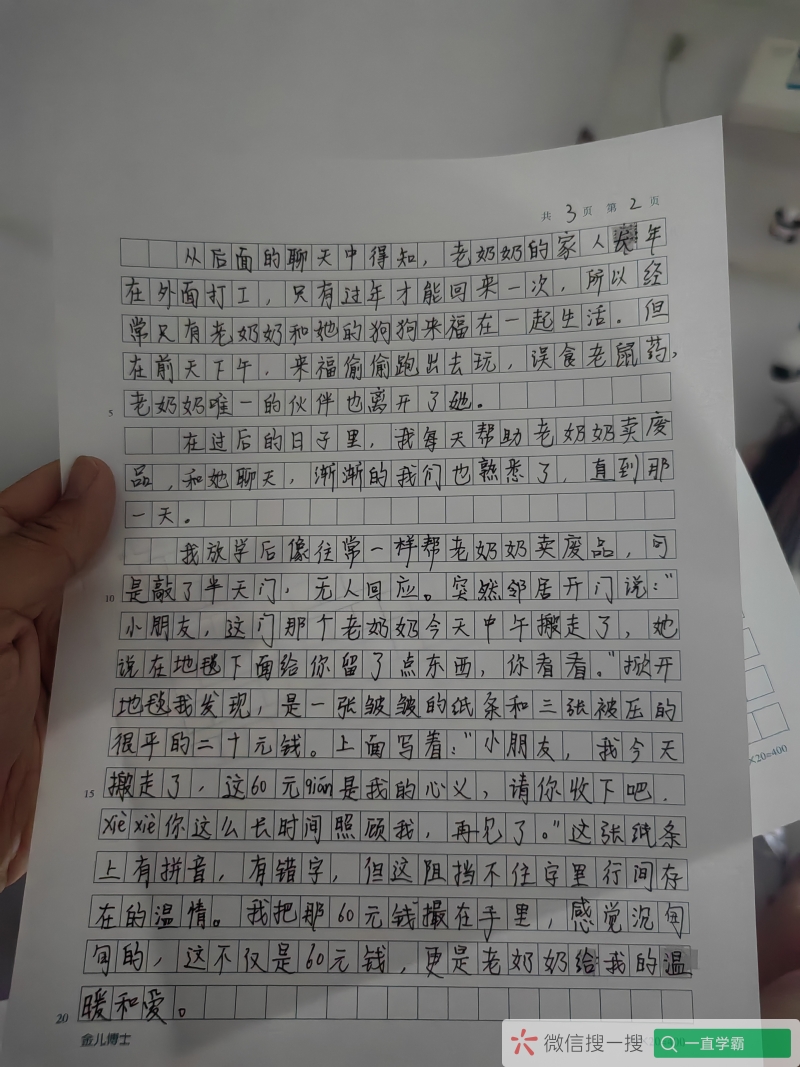 共3页 第2页
从后面的聊天中得知，老奶奶的家人 年
在外面打工，只有过年才能回来一次，所以经
常只有老奶奶和她的狗狗来福在一起生活。但
在前天下午，来福偷偷跑出去玩，误食老鼠药，
5 老奶奶唯一的伙伴也离开了她。
在过后的日子里，我每天帮助老奶奶卖废
品，和她聊天，渐渐的我们也熟悉了，直到那
一天。
我放学后像往常一样帮老奶奶卖废品，可
10 是敲了半天门，无人回应。突然邻居开门说：“
小朋友，这门那个老奶奶今天中午搬走了，她
说在地毯下面给你留了点东西，你看看。”掀开
地毯我发现，是一张皱皱的纸条和三张被压的
很平的二十元钱。上面写着：“小朋友，我今天
15 搬走了，这60元qián是我的心义，请你收下吧．
xiè xiè你这么长时间照顾我，再见了。”这张纸条
上有拼音，有错字，但这阻挡不住字里行间存
在的温情。我把那60元钱撮在手里，感觉沉甸
甸的，这不仅是60元钱，更是老奶奶给我的温
20 暖和爱。
金儿博士
×20=400
微信搜一搜 一直学霸